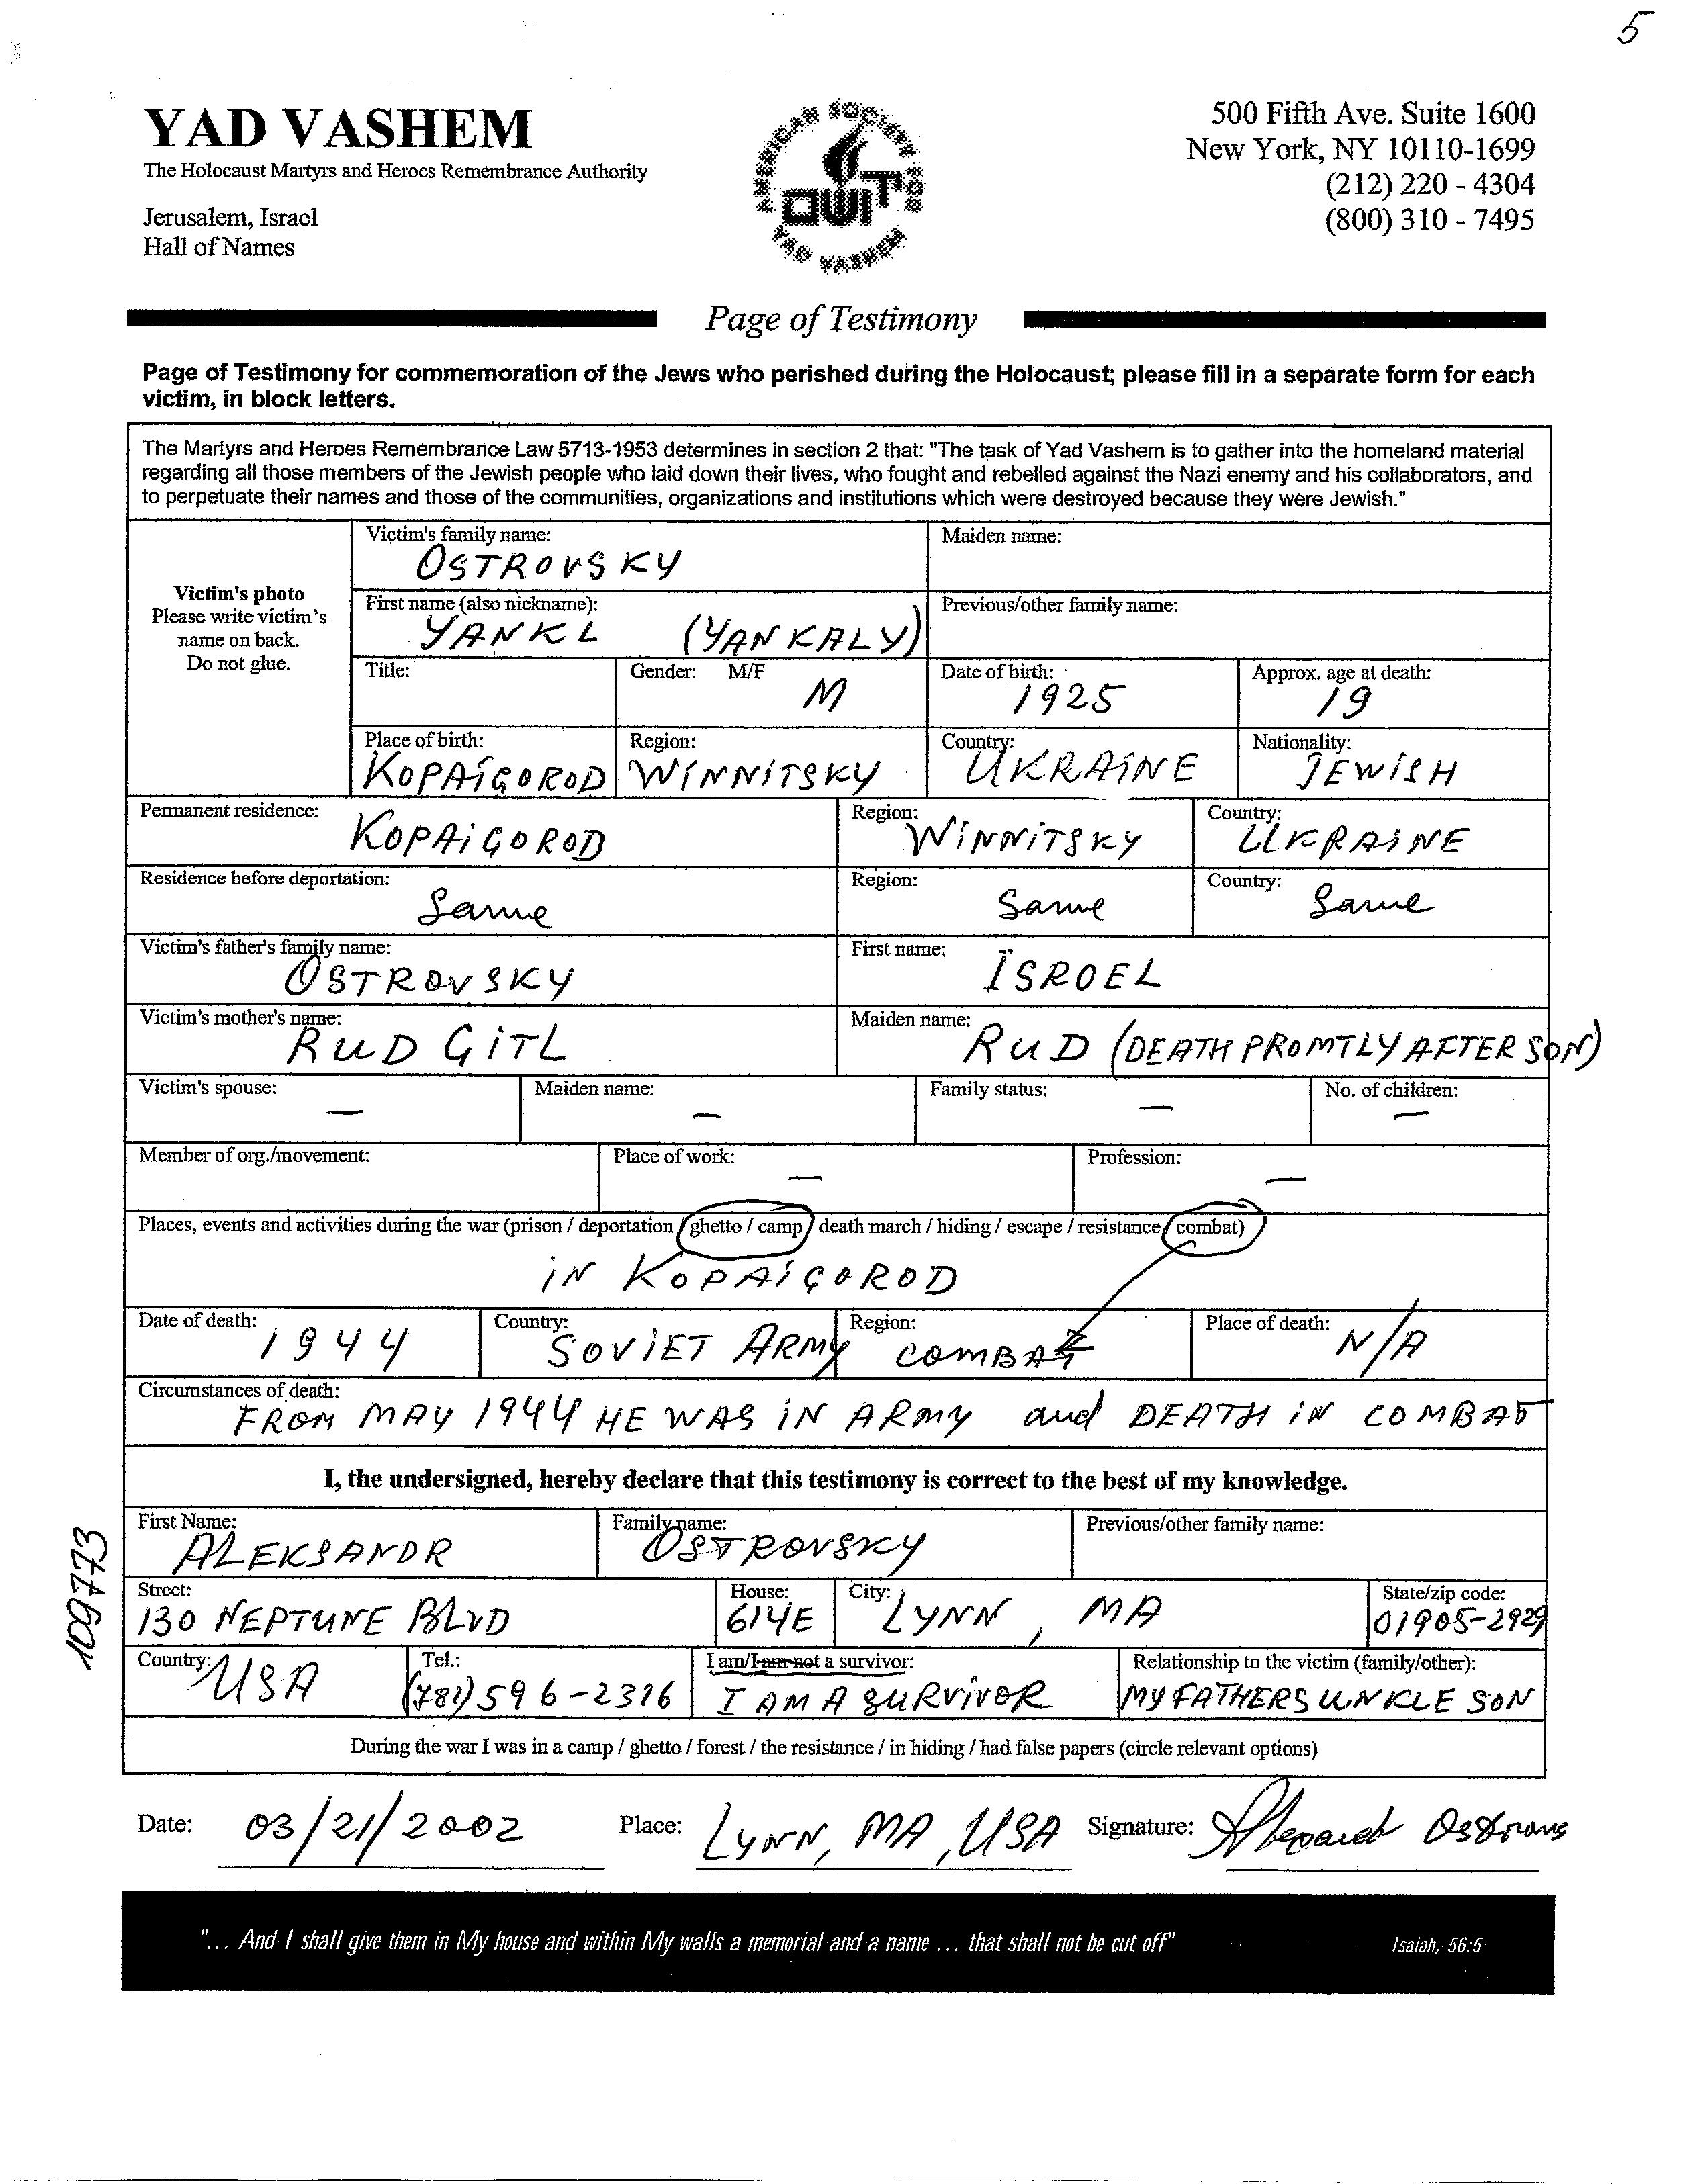 5
YAD VASHEM
The Holocaust Martyrs and Heroes Remembrance Authority
Jerusalem, Israel
Hall of Names
AMERICAN SOCIETY FOR
יד ושם
YAD VASHEM
500 Fifth Ave. Suite 1600
New York, NY 10110-1699
(212) 220 - 4304
(800) 310 - 7495
Page of Testimony
Page of Testimony for commemoration of the Jews who perished during the Holocaust; please fill in a separate form for each
victim, in block letters.
The Martyrs and Heroes Remembrance Law 5713-1953 determines in section 2 that: "The task of Yad Vashem is to gather into the homeland material
regarding all those members of the Jewish people who laid down their lives, who fought and rebelled against the Nazi enemy and his collaborators, and
to perpetuate their names and those of the communities, organizations and institutions which were destroyed because they were Jewish."
Victim's photo
Please write victim's
name on back.
Do not glue.
Victim's family name: Maiden name:
OSTROVSKY
First name (also nickname): Previous/other family name:
YANKL (YANKALY)
Title: Gender: M/F Date of birth: Approx. age at death:
M 1925 19
Place of birth: Region: Country: Nationality:
KOPAIGOROD WINNITSKY UKRAINE JEWISH
Permanent residence: Region: Country:
KOPAIGOROD WINNITSKY UKRAINE
Residence before deportation: Region: Country:
Same Same Same
Victim's father's family name: First name:
OSTROVSKY ISROEL
Victim's mother's name: Maiden name:
RUD GITL RUD (DEATH PROMTLY AFTER SON)
Victim's spouse: Maiden name: Family status: No. of children:
— — — —
Member of org./movement: Place of work: Profession:
— —
Places, events and activities during the war (prison / deportation / ghetto / camp / death march / hiding / escape / resistance / combat)
IN KOPAIGOROD
Date of death: Country: Region: Place of death:
1944 SOVIET ARMY COMBAT N/A
Circumstances of death:
FROM MAY 1944 HE WAS IN ARMY and DEATH IN COMBAT
I, the undersigned, hereby declare that this testimony is correct to the best of my knowledge.
First Name: Family name: Previous/other family name:
ALEKSANDR OSTROVSKY
Street: House: City: State/zip code:
130 NEPTUNE BLVD 614E LYNN, MA 01905-2929
Country: Tel.: I am/I am not a survivor: Relationship to the victim (family/other):
USA (781) 596-2316 I AM A SURVIVOR MY FATHERS UNKLE SON
During the war I was in a camp / ghetto / forest / the resistance / in hiding / had false papers (circle relevant options)
Date: 03/21/2002 Place: LYNN, MA, USA Signature:
"... And I shall give them in My house and within My walls a memorial and a name ... that shall not be cut off" Isaiah, 56:5